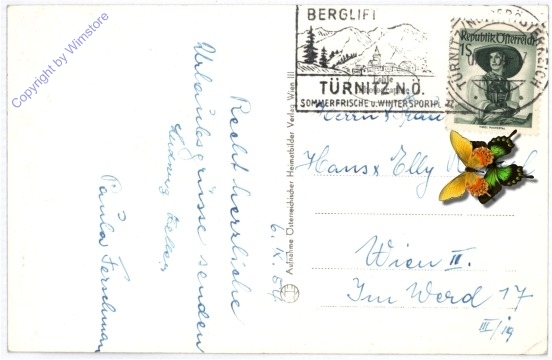 Copyright by Wimstore
BERGLIFT
TÜRNITZ N.Ö.
SOMMERFRISCHE U. WINTERSPORTPLATZ
TÜRNITZ, NIEDERÖSTERREICH
Republik Österreich
1S
Recht herzliche
Urlaubsgrüsse senden
Paula
6. IX. 57
Aufnahme Österreichischer Heimatbilder Verlag Wien III
Herrn u. Frau
Hans & Elly
Wien II.
Im Werd 17
III/19